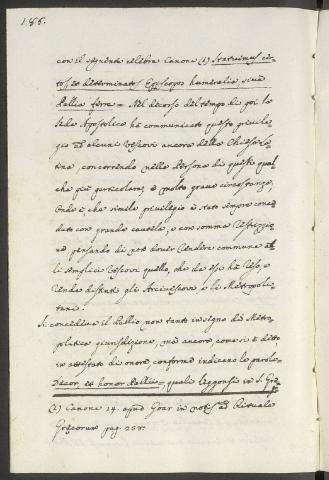 186.
con il seguente celebre Canone (1) Statuimus cer-
tos, et determinatos Episcopos humeralia, sive
Pallia ferre = Nel decorso del tempo di poi la
Sede Apostolica hà communicato questo privile-
gio ad alcuni Vescovi ancora della Chiesa La-
tina, concorrendo nella Persona di questi qual-
che più particolare, e molto grave circostanza,
onde è che simile privilegio è stato sempre conce-
duto con grande cautela, e con somma
pensando di non dover rendere commune al-
li semplici Vescovi quello, che da essi hà l'uso, e
rende distinti gli Arcivescovi, e li Metropoli-
tani.
Si concedeva il Pallio non tanto in segno di Metro-
politica giurisdizione, mà ancora, come si è detto,
in attestato di onore conforme indicano le parole
Decor, et honor Pallii =, quali leggonsi in S. Gre-
(1) Canone 14. apud Goar in notis ad Rituale
Græcorum pag. 258.